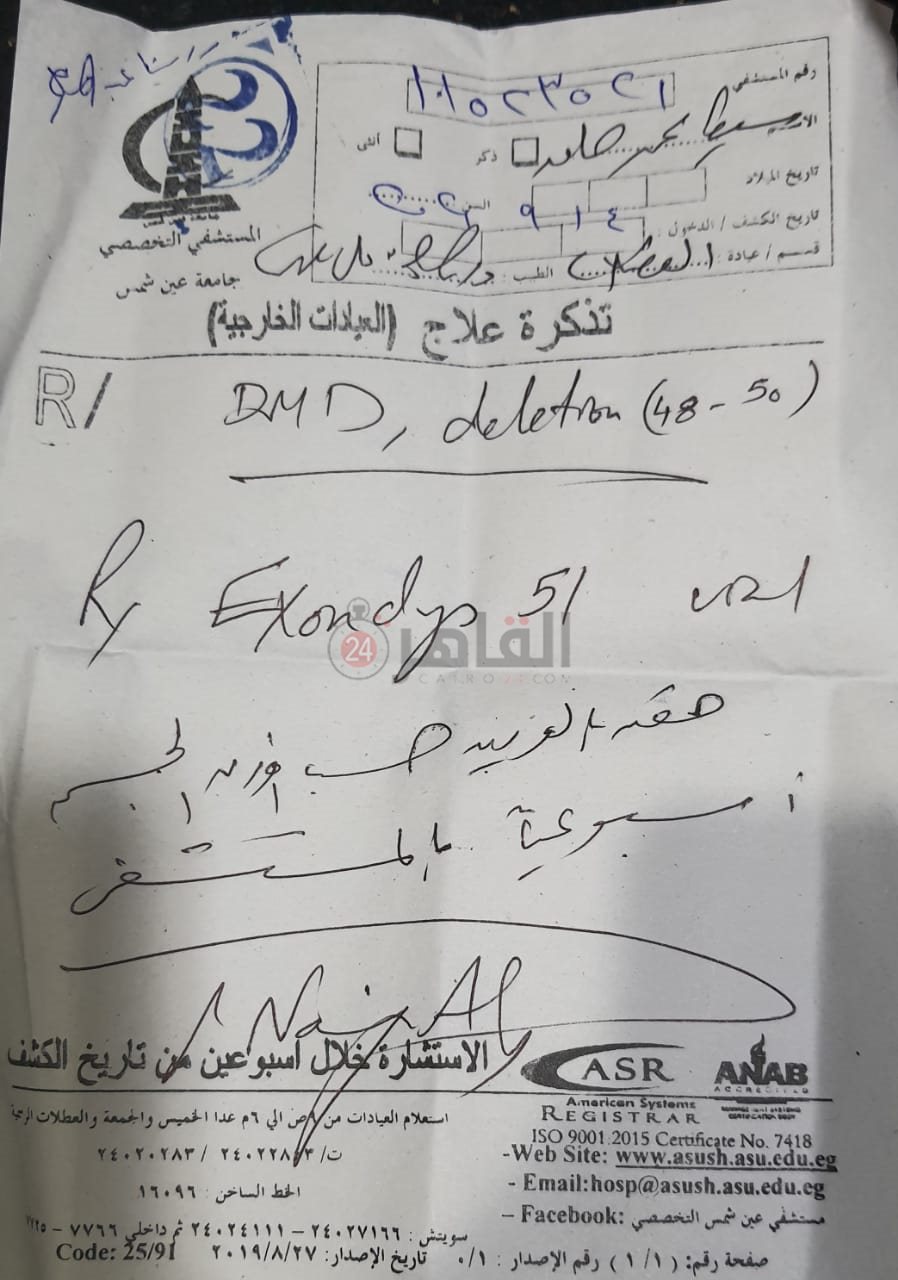 رقم المستشفى ١٠١٥٢٣٥٢١
ذكر أنثى
تاريخ الميلاد
تاريخ الكشف / الدخول : ١٤ ٩ السن
قسم / عيادة : الطبيب :
المستشفي التخصصي
جامعة عين شمس
تذكرة علاج (العيادات الخارجية)
R/
DMD, deletion (48-50)
Ry Exondys 51
القاهرة 24
CAIRO24.COM
حقنه بالوريد حسب وزن الجسم
أسبوعية بالمستشفى
الاستشارة خلال أسبوعين من تاريخ الكشف
استعلام العيادات من ٩ص الي ٦م عدا الخميس والجمعة والعطلات الرسمية
الخط الساخن : ١٦٠٩٦
سويتش : ٢٤٠٢٧١٦٦ - ٢٤٠٢٤١١١ ثم داخلي ٧٧٦٦ -
Code: 25/91 تاريخ الإصدار: ٢٠١٩/٨/٢٧
صفحة رقم: (١/١) رقم الإصدار : ٠/١
ASR
American Systems
REGISTRAR
ANAB
ACCREDITED
ISO 9001:2015 Certificate No. 7418
-Web Site: www.asush.asu.edu.eg
- Email:hosp@asush.asu.edu.eg
– Facebook: مستشفي عين شمس التخصصي